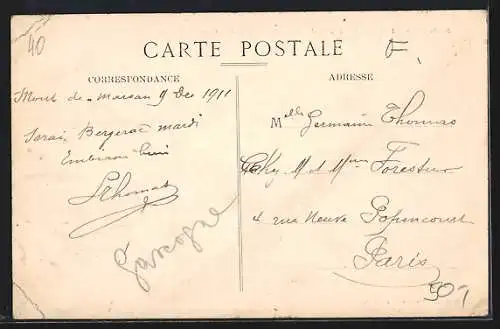 40
CARTE POSTALE
F
CORRESPONDANCE
ADRESSE
Mont de-marsan 9 Dec 1911
Serai Bergerac mardi
LThomas
Gascogne
Melle Germaine Thomas
Chez M et Mme Forestier
4 rue Neuve Popincourt
Paris